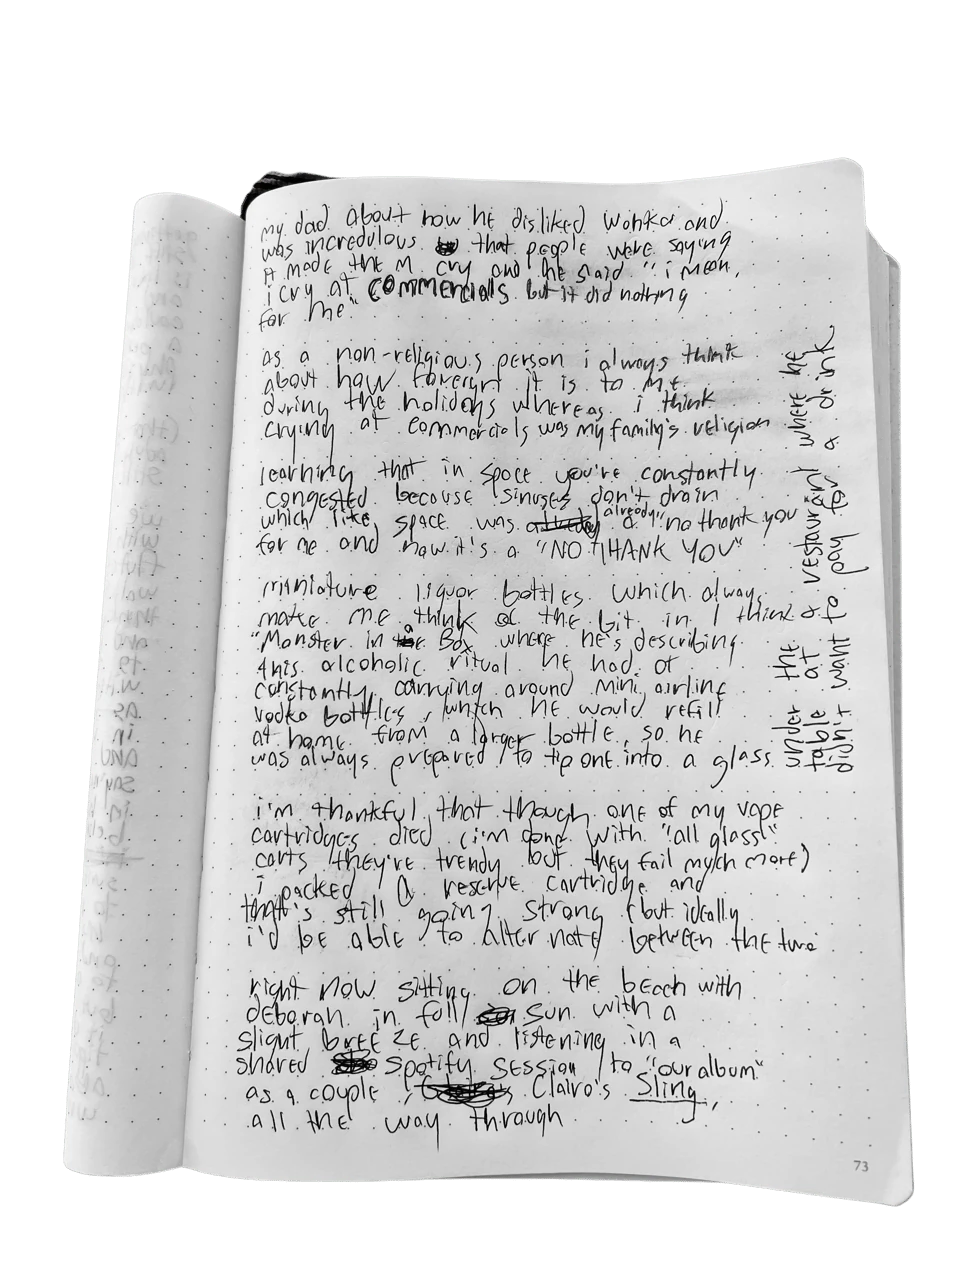 my dad about how he disliked wonka and
was incredulous that people were saying
it made them cry and he said "i mean,
i cry at commercials but it did nothing
for me"
as a non-religious person i always think
about how foreign it is to me
during the holidays whereas i think
crying at commercials was my family's religion
learning that in space you're constantly
congested because sinuses don't drain
which like space was already a "no thank you"
for me and now it's a "NO THANK YOU"
miniature liquor bottles which always
make me think of the bit in I think
"Monster in a Box where he's describing
this alcoholic ritual he had of
constantly carrying around mini airline
vodka bottles, which he would refill
at home from a larger bottle, so he
was always prepared to tip one into a glass
under the table at a restaurant where he
didn't want to pay for a drink
i'm thankful that though one of my vape
cartridges died (i'm done with "all glass"
carts they're trendy but they fail much more)
i packed a reserve cartridge and
that's still going strong (but ideally
i'd be able to alternate between the two
right now sitting on the beach with
deborah in full sun with a
slight breeze and listening in a
shared spotify session to "our album"
as a couple, Clairo's Sling,
all the way through
73